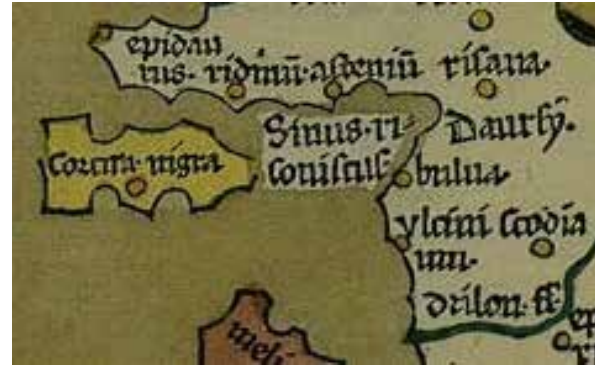 epidau
rus· ridinū·asceniū risana·
Sinus·ri
conicus
Daursÿ·
Corcira·nigra
bulua·
ylcini Scodia
um·
drilon·ff·
ep
ri
meli